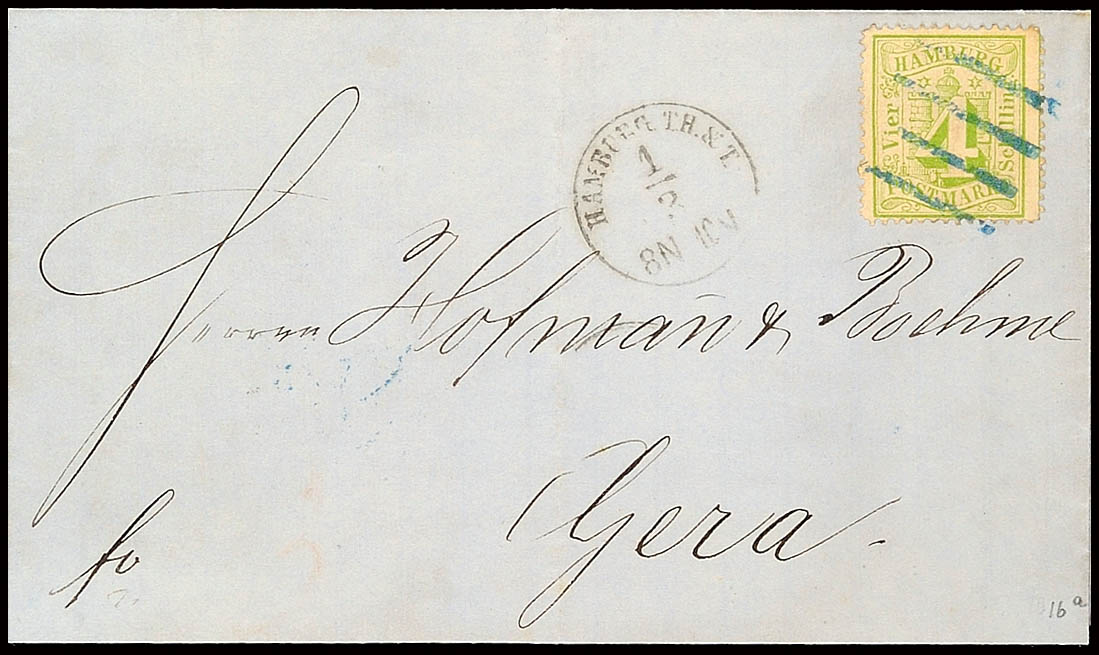 HAMBURG
Vier
4
Schilling
POSTMARKE
HAMBURG TH. & T.
1/3
8N
Herren Hofmañ & Boehme
Gera.
fo
16a